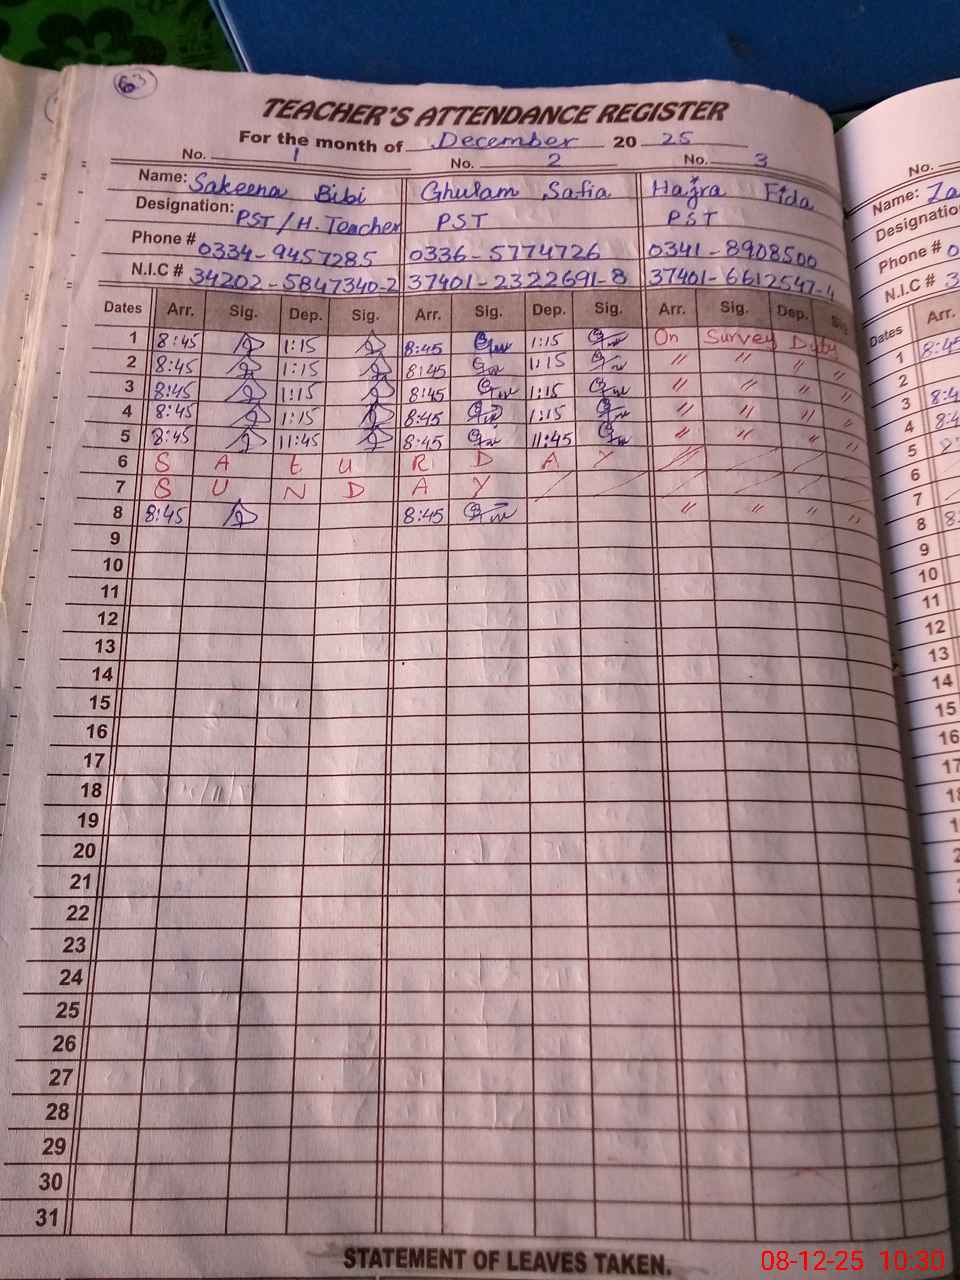 63
TEACHER'S ATTENDANCE REGISTER
For the month of December 20 25
No. 1 No. 2 No. 3
Name: Sakeena Bibi Ghulam Safia Hajra Fida
Designation: PST / H. Teacher PST PST
Phone # 0334-9457285 0336-5774726 0341-8908500
N.I.C # 34202-5847340-2 37401-2322691-8 37401-6612547-4
Dates Arr. Sig. Dep. Sig. Arr. Sig. Dep. Sig. Arr. Sig. Dep. Sig
1 8:45 1:15 8:45 1:15 On Survey Duty
2 8:45 1:15 8:45 1:15 " " " "
3 8:45 1:15 8:45 1:15 " " " "
4 8:45 1:15 8:45 1:15 " " " "
5 8:45 11:45 8:45 11:45 " " " "
6 S A t U R D A Y
7 S U N D A Y
8 8:45 8:45 " " " "
9
10
11
12
13
14
15
16
17
18
19
20
21
22
23
24
25
26
27
28
29
30
31
STATEMENT OF LEAVES TAKEN.
No.
Name: Za
Designation
Phone # 0
N.I.C # 3
Dates Arr.
1 8:45
2
3 8:4
4 8:4
5
6
7
8 8:
9
10
11
12
13
14
15
16
17
08-12-25 10:30